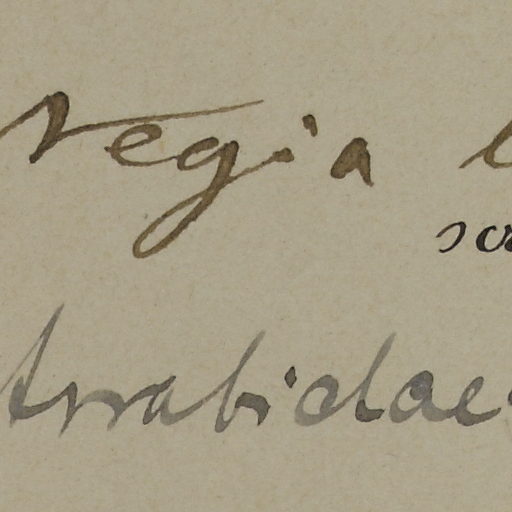 regia
Arrabidae